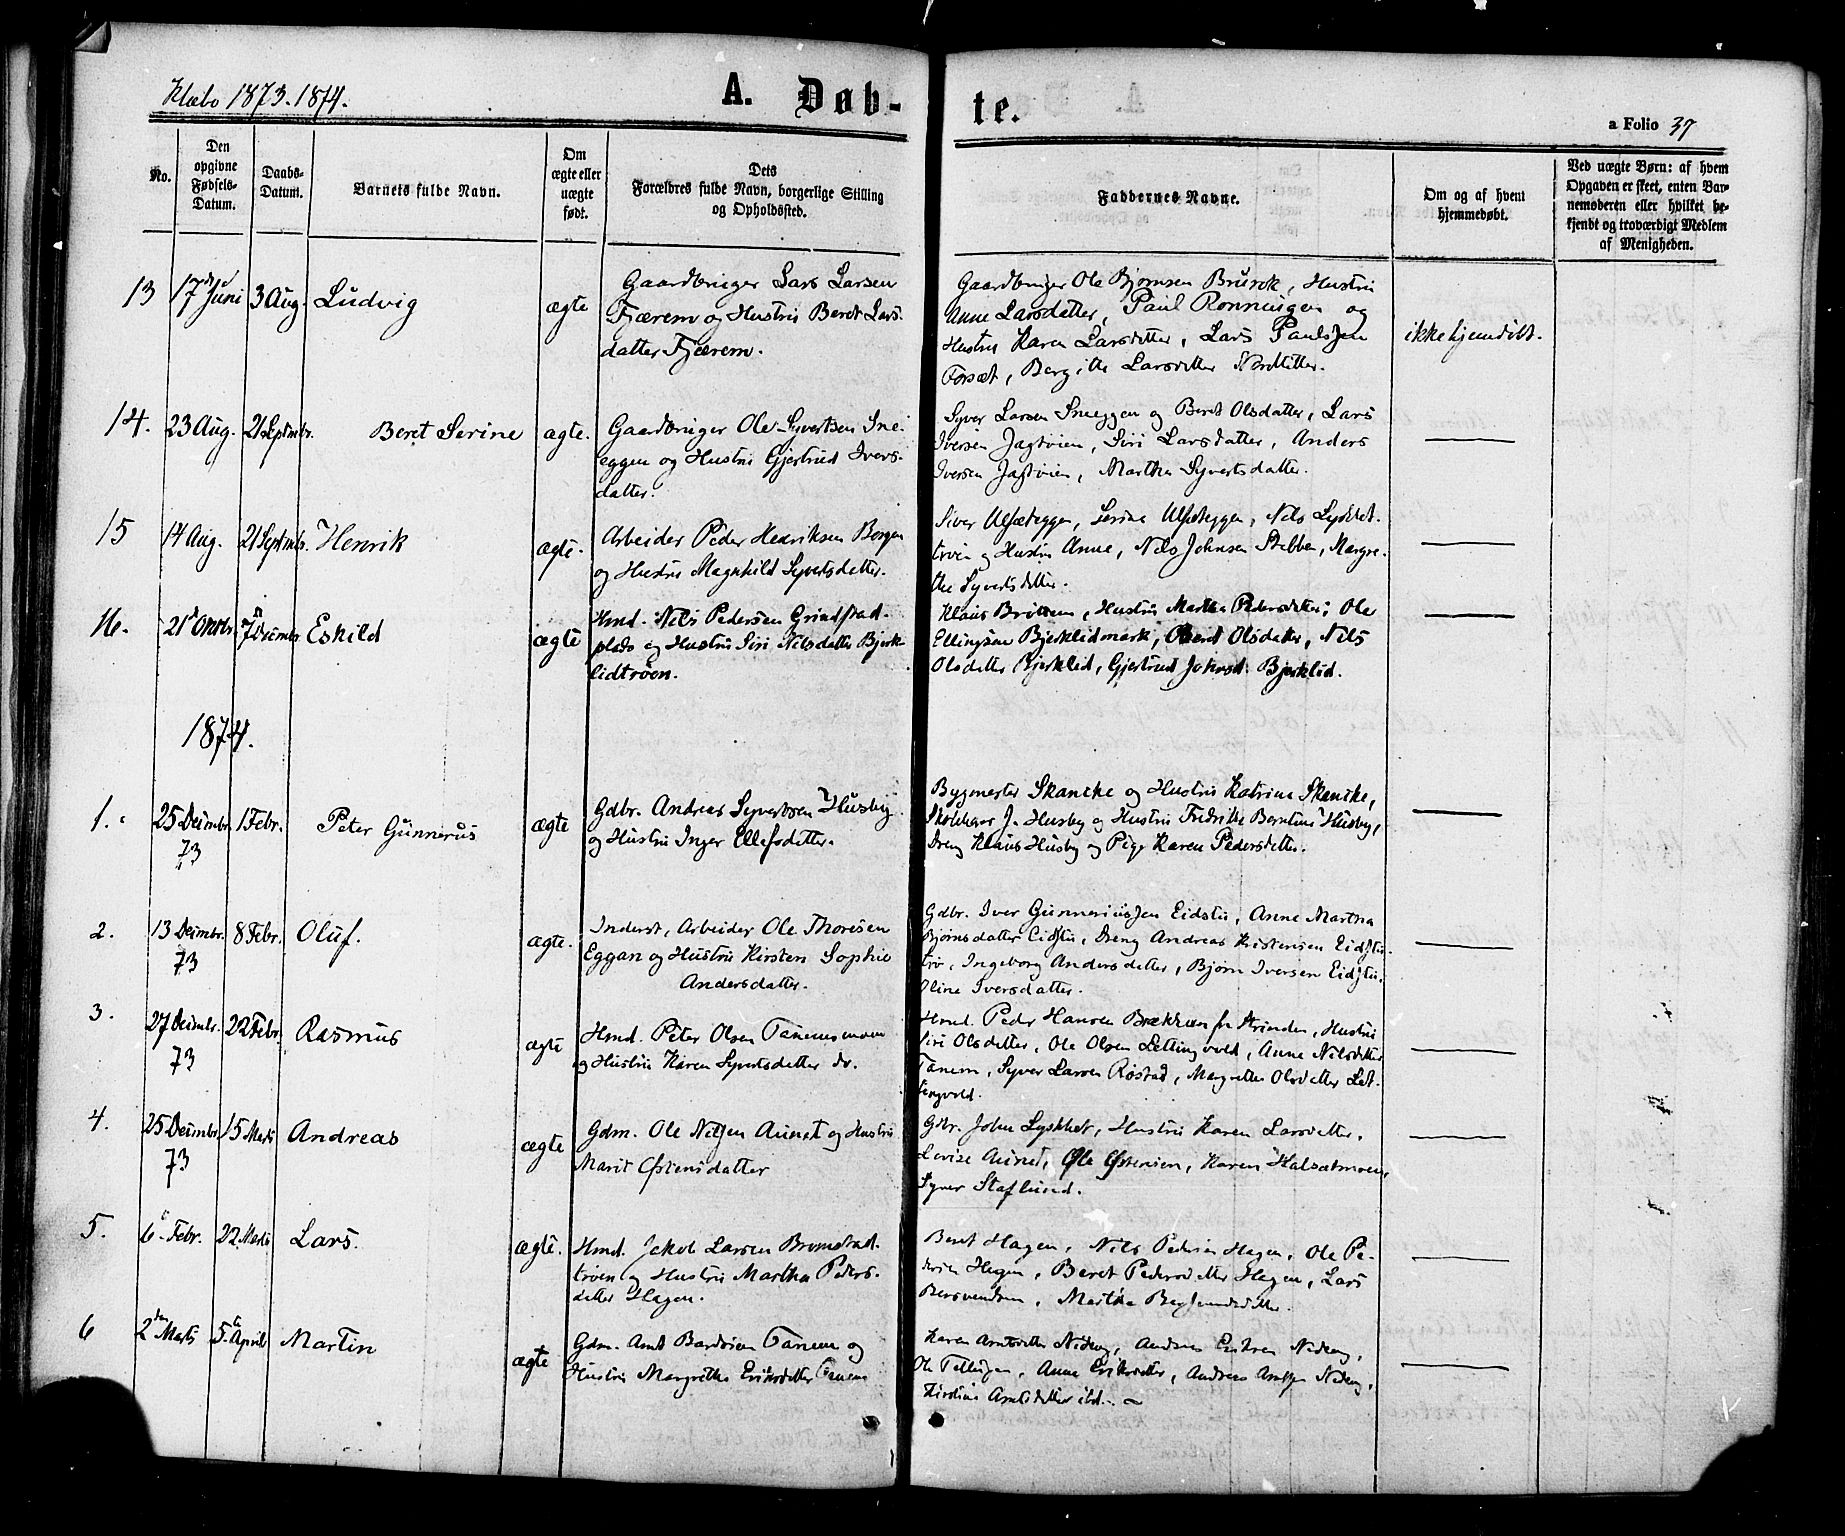 Klæbo 1873.1874.
A. Døb-
te.
a Folio 37
No.
Den opgivne Fødsels-Datum.
Daabs-Datum.
Barnets fulde Navn.
Om ægte eller uægte født.
Dets Forældres fulde Navn, borgerlige Stilling og Opholdssted.
Faddernes Navne.
Om og af hvem hjemmedøbt.
Ved uægte Børn: af hvem Opgaven er skeet, enten Barnemoderen eller hvilket bekjendt og troværdigt Medlem af Menigheden.
13 17de Juni 3 Aug. Ludvig ægte
Gaardbruger Lars Larsen
Fjærem og Hustru Beret Lars-
datter Fjærem.
Gaardbruger Ole Bjørnsen Brurok, Hustru
Anne Larsdatter, Paul Rønningen og
Hustru Karen Larsdatter, Lars Paulsen
Forsæt, Bergitte Larsdatter
ikke hjemdøbt.
14. 23 Aug. 21 Septmbr. Beret Serine ægte.
Gaardbruger Ole Syvertsen Sne-
eggen og Hustru Gjertrud Ivers-
datter.
Syver Larsen Sneeggen og Beret Olsdatter, Lars
Iversen Jagtøien, Siri Larsdatter, Anders
Iversen Jagtøien, Martha Syvertsdatter.
15 14 Aug. 21 Septmbr. Henrik ægte.
Arbeider Peder Henriksen Borgen
og Hustru Magnhild Syvertsdatter.
Siver Ulsæteggen, Serina Ulsæteggen, Nils Lysklet-
trøen og Hustru Anne, Nils Johnsen Stubben, Margre-
the Syvertsdatter.
16. 21de Oktobr. 7de Decembr. Eskild ægte
Hmd. Nils Pedersen Grindstad-
plads og Hustru Siri Nilsdatter Bjerk-
lidtrøen.
Klaus Hustru Martha Pedersdatter; Ole
Ellingsen Bjerklidmark, Beret Olsdatter, Nils
Olsdatter Bjerklid, Gjertrud Johnsd. Bjerklid.
1874.
1. 25 Decmbr. 73 1 Febr. Peter Gunnerus ægte
Gdbr. Andreas Syvertsen Husby
og Hustru Inger Ellefsdatter.
Bygmester Skancke og Hustru Katrina Skancke,
Skolelærer J. Husby og Hustru Fredrikke Berntine Husby,
Dreng Klaus Husby og Pige Karen Pedersdatter.
2. 13 Decmbr. 73 8 Febr. Oluf. ægte.
Inderst, Arbeider Ole Thoresen
Eggan og Hustru Kirsten Sophie
Andersdatter.
Gdbr. Iver Gunneriussen Eidstu, Anne Martha
Bjørnsdatter Eidstu, Dreng Andreas Kristensen Eidstu-
trø, Ingeborg Andersdatter, Bjørn Iversen Eidstu,
Oline Iversdatter.
3. 27 Decmbr. 73 22 Febr. Rasmus ægte
Hmd. Peter Olsen Tanemsmoen
og Hustru Karen Syvertsdatter do.
Hmd. Peder Hansen Brækken fra Strinden, Hustru
Siri Olsdatter, Ole Olsen Lettingvold, Anne Nilsdatter
Tanem, Syver Larsen Røstad, Margrethe Olsdatter Let-
tingvold.
4. 25 Decmbr. 73 15 Marts Andreas ægte
Gdm. Ole Nilsen Aunet og Hustru
Marit Østensdatter
Gdbr. John Lysklet, Hustru Karen Larsdatter,
Lovise Aunet, Ole Østensen, Karen Halsætmoen,
Syver Staflund.
5. 6te Febr. 22 Marts Lars. ægte.
Hmd. Jakob Larsen Bromstad-
trøen og Hustru Martha Peders-
datter Hagen.
Beret Hagen, Nils Pedersen Hagen, Ole Pe-
dersen Hagen, Beret Pedersdatter Hagen, Lars
Bersvendsen, Martha Bersvendsdatter.
6 2den Marts 5te April Martin ægte
Gdm. Arnt Bardosen Tanem og
Hustru Margrethe Eriksdatter Tanem
Karen Arntsdatter Nideng, Andreas Eriksen Nideng,
Ole Tellugen, Anne Eriksdatter, Andreas Arntsen Nideng,
Kirstine Arntsdatter ibd.